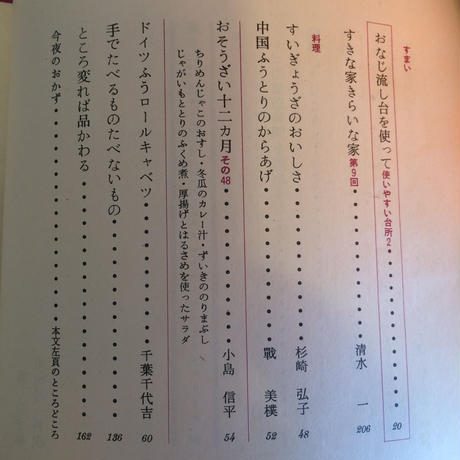 すまい
おなじ流し台を使って 使いやすい台所2 20
すきな家きらいな家 第9回 清水 一 206
料理
すいぎょうざのおいしさ 杉崎 弘子 48
中国ふうとりのからあげ 戰 美樸 52
おそうざい十二カ月 その48 小島 信平 54
ちりめんじゃこのおすし・冬瓜のカレー汁・ずいきののりまぶし
じゃがいもととりのふくめ煮・厚揚げとはるさめを使ったサラダ
ドイツふうロールキャベツ 千葉千代吉 60
手でたべるものたべないもの 136
ところ変れば品かわる 162
今夜のおかず 本文左頁のところどころ